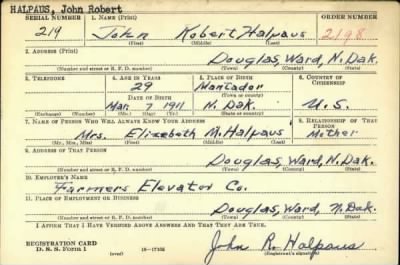 HALPAUS, John Robert
SERIAL NUMBER 1. NAME (Print) ORDER NUMBER
219 John Robert Halpaus 2198
(First) (Middle) (Last)
2. ADDRESS (Print)
Douglas, Ward, N. Dak.
(Number and street or R. F. D. number) (Town) (County) (State)
3. TELEPHONE 4. AGE IN YEARS 5. PLACE OF BIRTH 6. COUNTRY OF CITIZENSHIP
29 Mantador
(Town or county)
DATE OF BIRTH
Mar. 7 1911 N. Dak. U. S.
(Exchange) (Number) (Mo.) (Day) (Yr.) (State or country)
7. NAME OF PERSON WHO WILL ALWAYS KNOW YOUR ADDRESS 8. RELATIONSHIP OF THAT PERSON
Mrs. Elizabeth M. Halpaus Mother
(Mr., Mrs., Miss) (First) (Middle) (Last)
9. ADDRESS OF THAT PERSON
Douglas, Ward, N. Dak.
(Number and street or R. F. D. number) (Town) (County) (State)
10. EMPLOYER'S NAME
Farmers Elevator Co.
11. PLACE OF EMPLOYMENT OR BUSINESS
Douglas, Ward, N. Dak.
(Number and street or R. F. D. number) (Town) (County) (State)
I AFFIRM THAT I HAVE VERIFIED ABOVE ANSWERS AND THAT THEY ARE TRUE.
REGISTRATION CARD
D. S. S. Form 1 (over) John R. Halpaus
(Registrant's signature)